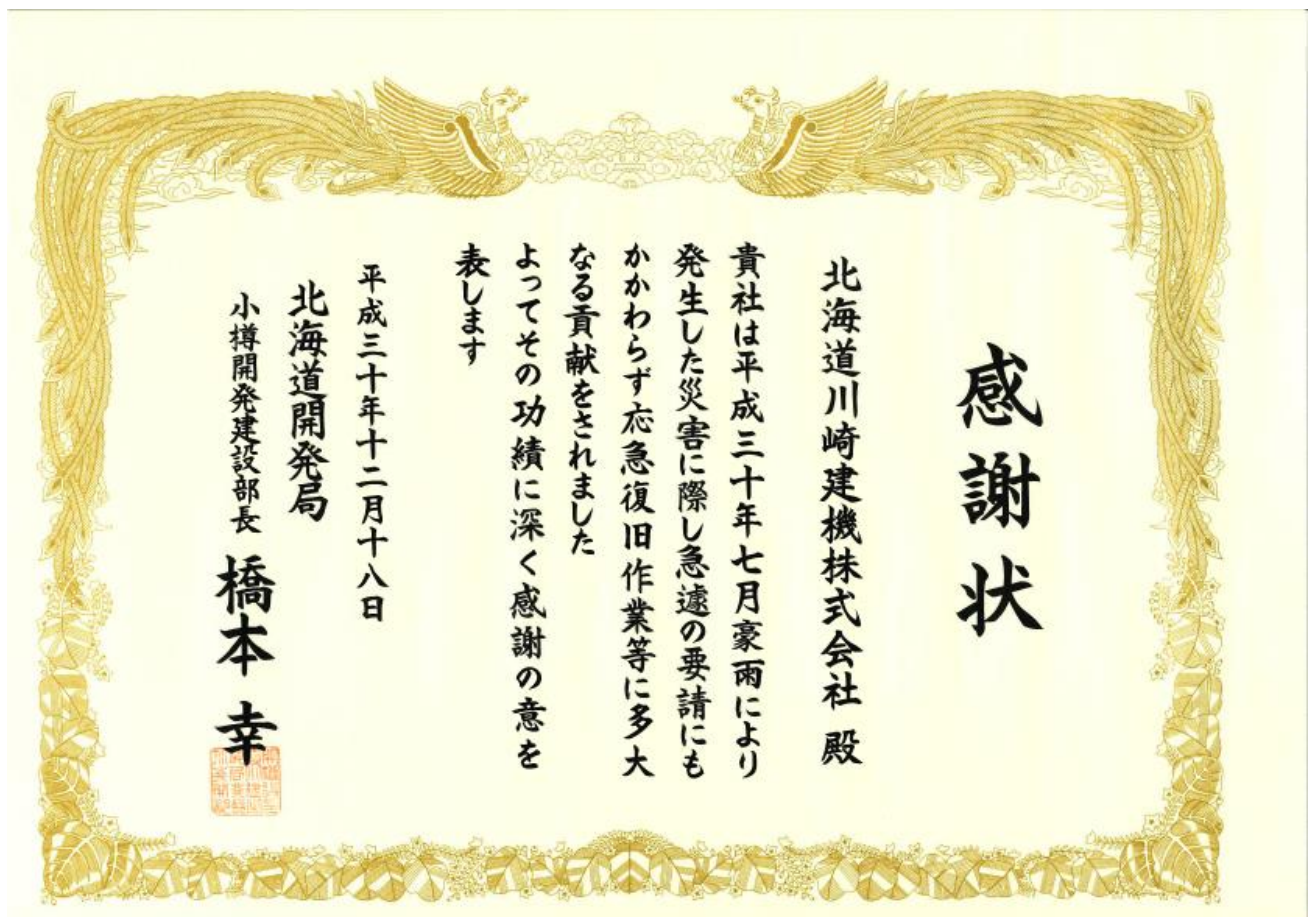 感謝状
北海道川崎建機株式会社 殿
貴社は平成三十年七月豪雨により
発生した災害に際し急遽の要請にも
かかわらず応急復旧作業等に多大
なる貢献をされました
よってその功績に深く感謝の意を
表します
平成三十年十二月十八日
北海道開発局
小樽開発建設部長 橋本 幸